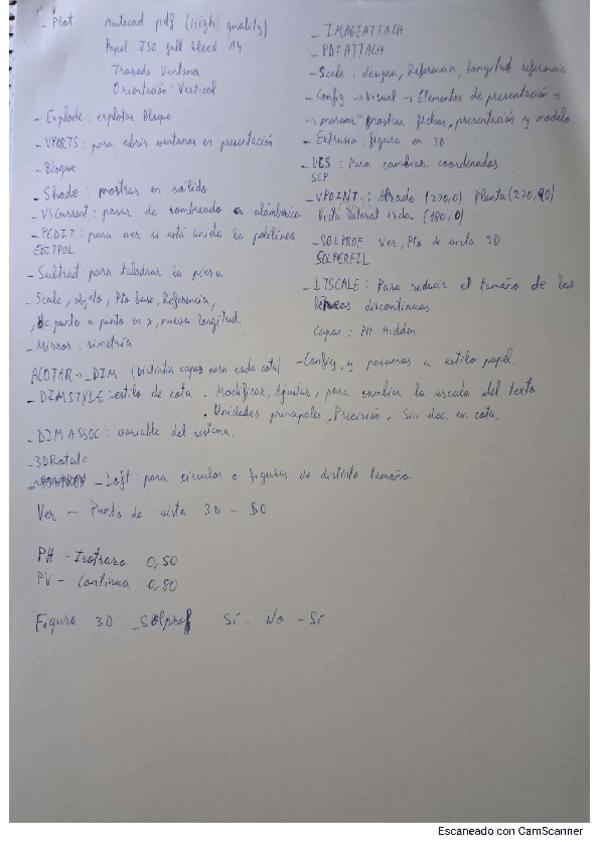 _Plot Autocad pdf (High quality)
Papel ISO full bleed A4
Trazado: Ventana
Orientación: Vertical
- Explode: explotar Bloque
- VPORTS: para abrir ventanas en presentación
- Bloque
- Shade: mostrar en sólido
- VSCurrent: pasar de sombreado a alámbrico
- PEDIT: para ver si está unida la polilínea
EDITPOL
- Subtract: para taladrar la pieza
- Scale, objeto, Pto base, Referencia,
, de punto a punto en x, nueva longitud.
- Mirror: simetría
_ IMAGEATTACH
_ PDFATTACH
- Scale, Referencia, longitud referencia
- Config → Visual → Elementos de presentación →
→ marcar "mostrar fichas, presentación y modelo.
- Extrusio: figura en 3D
_UCS: Para cambiar coordenadas
SCP
- VPOINT: Alzado (270,0) Planta (270,90)
Vista lateral izda. (180,0)
- SOLPROF Ver, Pto de vista 3D
SOLPERFIL
- LTSCALE: Para reducir el tamaño de las
líneas discontinuas
Capas: PH: Hidden.
ACOTAR → _DIM (Distintas capas para cada cota) - Config. y pasamos a estilo papel.
- DIMSTYLE: estilo de cota . Modificar, Ajustar, para cambiar la escala del texto
. Unidades principales, Precisión, Sin dec. en cota.
- DIMASSOC: variable del sistema.
-3DRotate
_Loft: para círculos o figuras de distinto tamaño.
Ver - Punto de vista 3D - SO
PH - Isotrazo 0,50
PV - Continua 0,80
Figura 3D _Solprof Sí - No - Sí
Escaneado con CamScanner